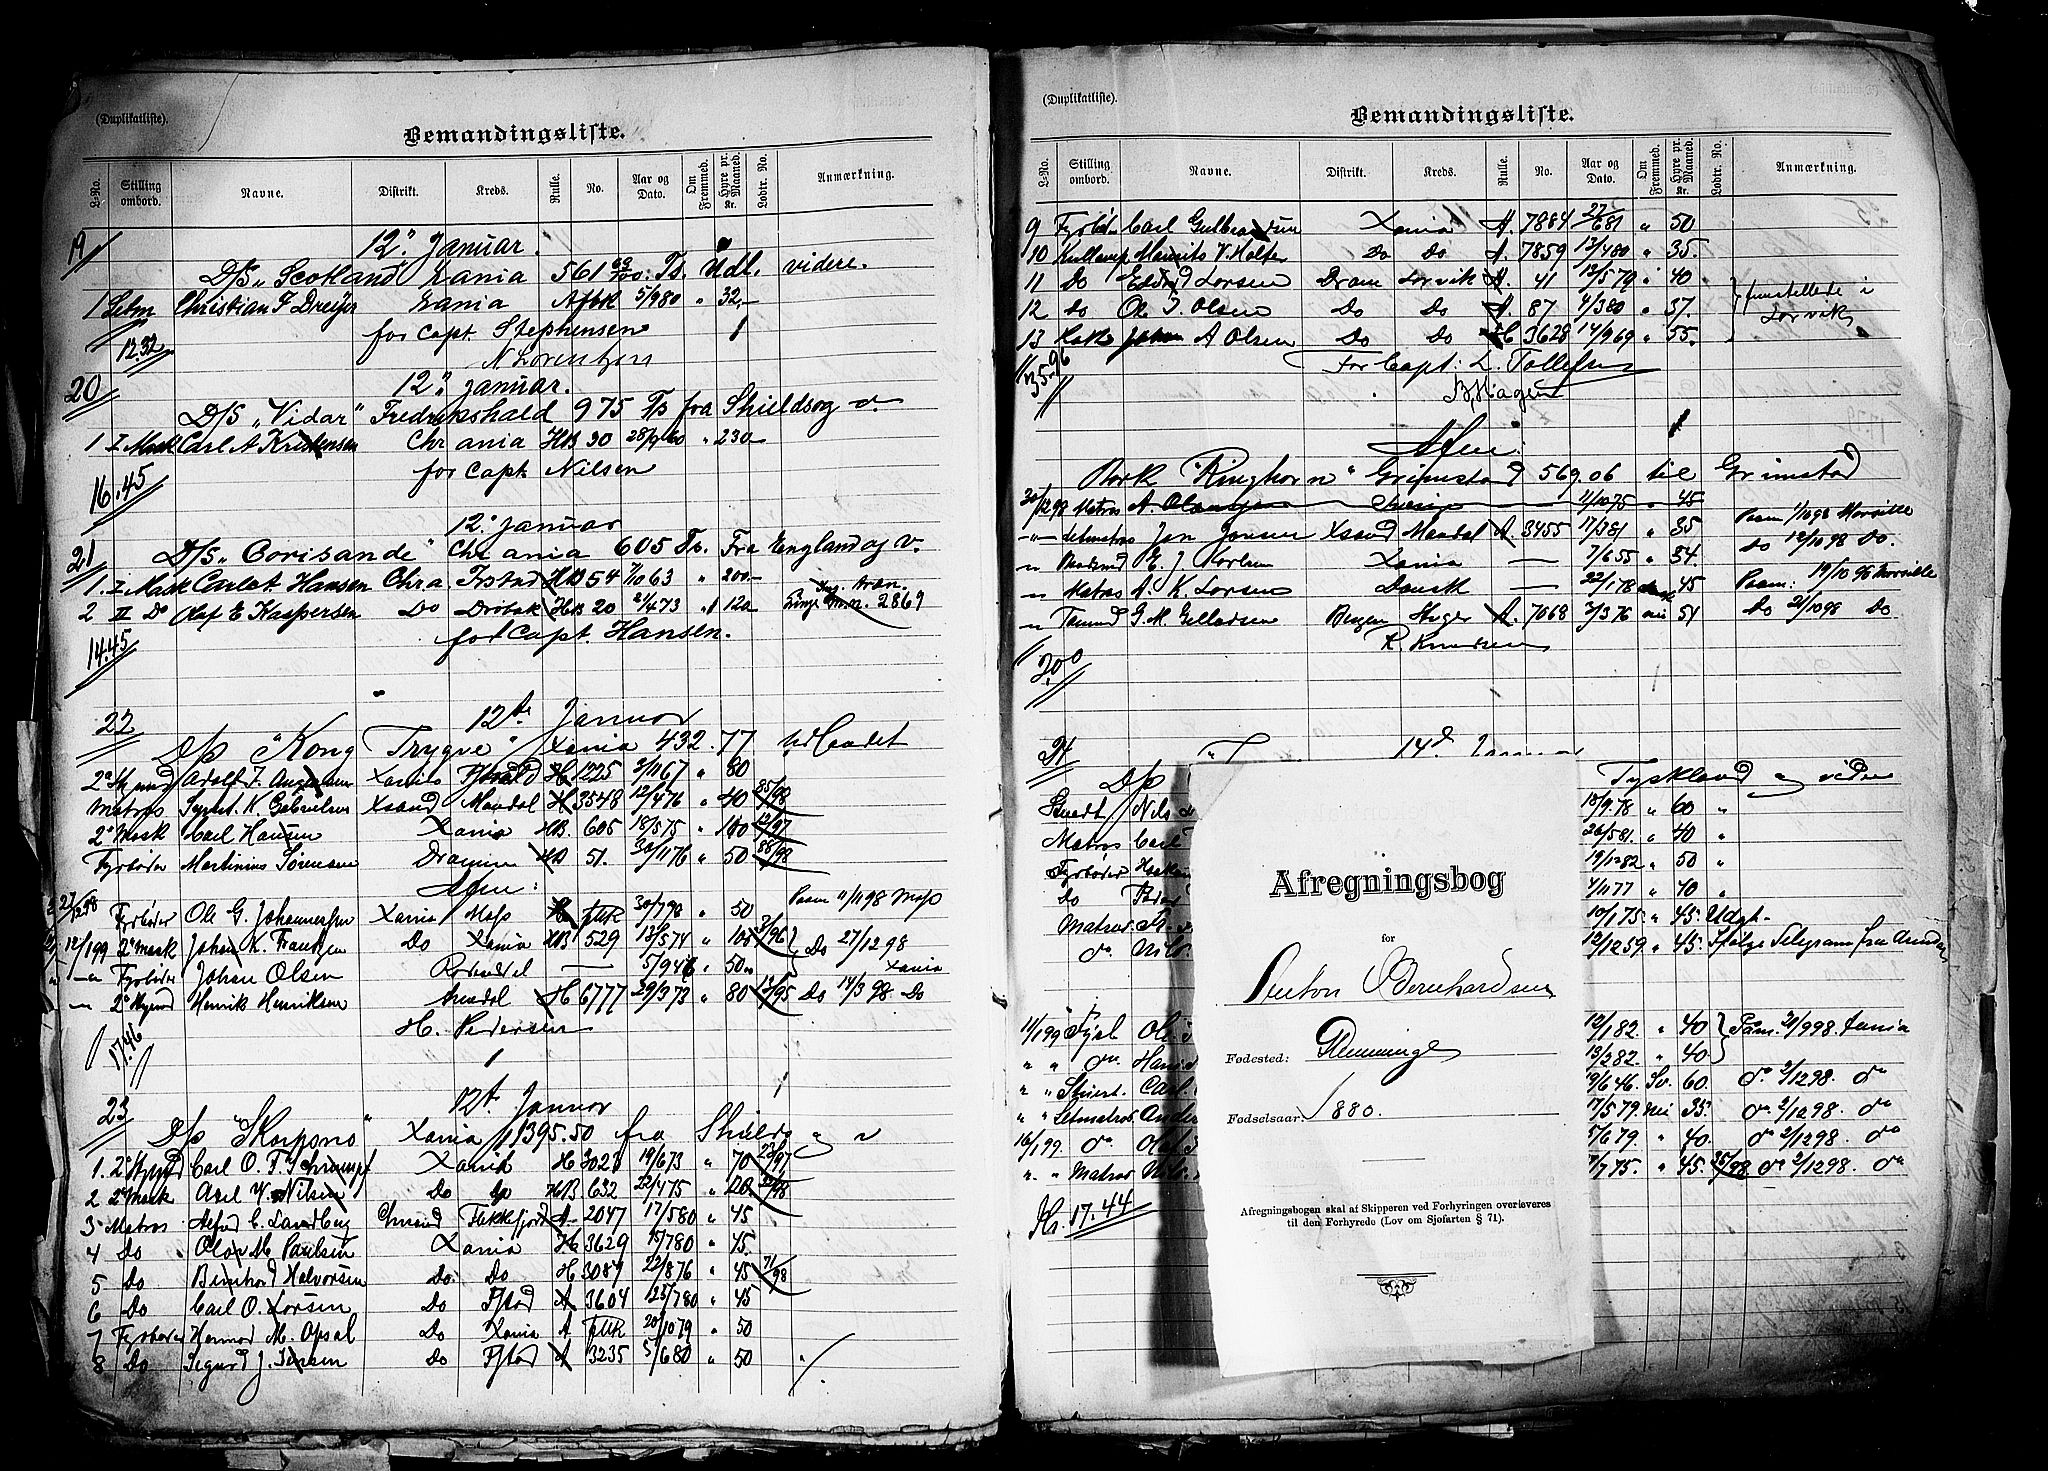 (Duplikatliste).
Bemandingsliste.
L-No. Stilling ombord. Navne. Distrikt. Kreds. Rulle. No. Aar og Dato. Om Fremmed. Hyre pr. Maaned. Kr. Lodtr. No. Anmærkning.
19 12. Januar.
D/S „Scotland Xania 561 63/100 Ts. Udl. videre.
1 Letm Christian F Dreyer Xania Afbk 5/980 " 32,-
for Capt. Stephensen
12.32 N Lorentzen
20 12. Januar.
D/S „Vidar" Fredrikshald 975 Ts fra Shields og v.
1 I Mask Carl A Kristensen Chr ania HB 30 28/9 60 " 230
for Capt Nilsen
16.45
12. Januar
21 D/S „Corisande" Chr ania 605 Ts. Fra England og v.
1 I Mask Carl A Hansen Chr.a. Frstad HB 54 7/10 63 " 200.-
2 II Do Olaf E Kaspersen Do Drøbak HB 20 2/473 " 120 2869
for Capt. Hansen.
14.45
22 12te Januar
D/S "Kong Trygve" Xania 432.77 Udlandet
2den Styrmd Adolf F. Xania Fjstad H 1225 3/1167 " 80
Matros K Gabrielsen Xsand Mandal H 3548 12/476 " 40 85/98
2' Mask Carl Hansen Xania HB. 605 18/575 " 100 12/97
Fyrbøder Martinius Sørensen Drammen HB 51. 30/1176 " 50 88/98
Afm:
Fyrbøder Ole G. Johannessen Xania Moss FBK 30/790 " 50 Paam 11/1198 Moss
12/199 2' Mask Johan K. Frantzen Do Xania HB 529 13/574 " 100 3/96 Do 27/1298
" — Fyrbøder Johan Olsen — 5/946 " 50 Xania
— 2' Styrmd Henrik Henriksen Arendal H 6777 29/373 " 80 12/95 Do 14/398 Do
H. Pedersen
17.46
23 12t. Januar
D/S "Skorpono" Xania 1395.50 fra Shields og v
1. 2' Styrmd Carl O. F. Schrumpf Xania H 3023 19/673 " 70 23/97
2 2' Mask Axel W. Nilsen Do Do HB 632 22/475 "
3 Matros Alfred C. Landberg Chrsand Flekkefjord A 2047 17/580 " 45
4 Do Olav M. Paulsen Xania H 3629 19/780 " 45.
5 Do Halvorsen Do. Do H 3084 22/876 " 45 71/98
6 Do Carl O. Larsen Do Fjstad A 3604 25/780 " 45
7 Fyrbøder Hermod M. Opsal Do Xania A FBK 20/1079 " 50
8 Do Sigurd J. Jensen Do Fjstad A 3235 5/680 " 50 "
(Duplikatliste).
Bemandingsliste.
L-No. Stilling ombord. Navne. Distrikt. Kreds. Rulle. No. Aar og Dato. Om Fremmed. Hyre pr. Maaned. Kr. Lodtr. No. Anmærkning.
9 Fyrbøder Carl Gulbrandsen Xania A. 7884 22/681 " 50
10 Kullemp Mauritz V. Holter Do Do A. 7859 13/480 " 35.
11 Do Edvard Larsen Dram Larvik A. 41 12/579 " 40
12 Do Ole J. Olsen Do Do A 87 4/380 " 37. paamstillede i
13 Kok Johan A Olsen Do Do H 3628 14/969 " 55. Larvik
35.96 For Capt: L. Tollefsen
B. Hagen
Afm:
Bark "Ringhorn" Grimstad 569.06 til Grimstad
30/1298 Matros A. 11/1075 " 45
— Letmatros Jan Jensen Xsand Mandal A. 3455 17/381 " 35 Paam 1/1098 Marseille
" E. J. Karlsen Xania — 7/655 " 54. Do 12/1098 Do.
" Matros A. K. Larsen Dansk — 22/178 dansk 45 Paam: 19/1098 Marseille
— Tømmd G. M. Bergen A. 7068 3/376 nei 54 Do 21/1098 Do
K. Knudsen
2.00
24 14d Januar
D/S Tyskland og videre
Nils 18/9.78 " 60 "
Matros Carl 26/581. " 40 "
Fyrbøder Haakon 19/1282 " 50 "
Do 4/1177 " 40 "
Matros 10/175. " 45. Udgk.
do Nils 12/1259 " 45. Ifølge Telegram fra Arendal
11/199 Fyrb Ole 12/182. " 40 Paam. 21/998. Xania
" " do Hans 13/282 " 40
" " Stuert. Carl 19/646. Sv. 60. do 2/1298. do
" " Letmatros Ander 17/579. nei 35. do 2/1298. do
16/199. do Olaf 5/679 " 40. do 2/1298. do
" " Matros Nils 7/775. " 45. 35/98 do 2/1298. do
Kr. 17.44
Afregningsbog
for
Anton Bernhardsen
Fødested: Glemminge
Fødselsaar: 1880.
Afregningsbogen skal af Skipperen ved Forhyringen overleveres
til den Forhyrede (Lov om Sjøfarten § 71).